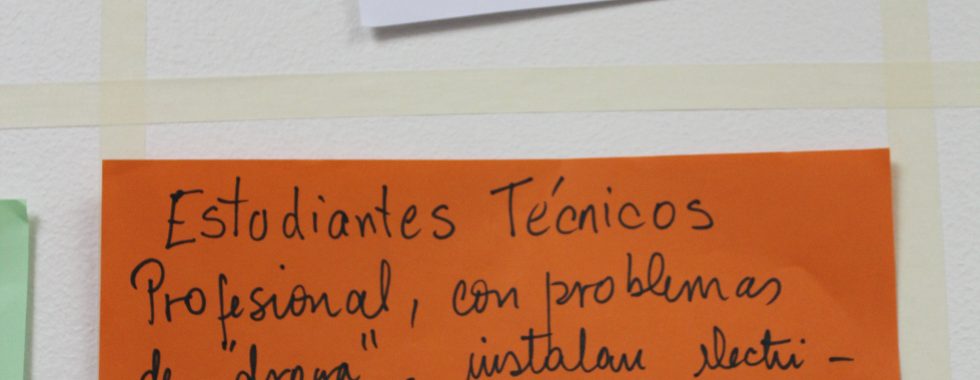 Estudiantes Técnicos
Profesional, con problemas
de "droga", instalan electri-